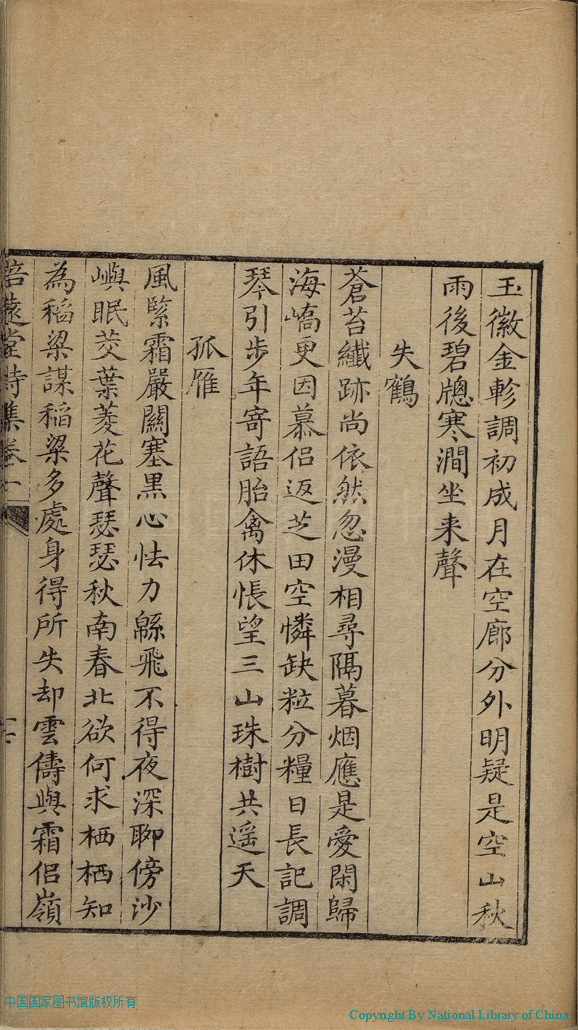 玉徽金軫調初成月在空廊分外明疑是空山秋
雨後碧牕寒澗坐来聲
失鶴
蒼苔纖跡尚依然忽漫相尋隔暮烟應是愛閑歸
海嶠更因慕侣返芝田空憐缺粒分糧日長記調
琴引步年寄語胎禽休悵望三山珠樹共遥天
孤雁
風緊霜嚴關塞黑心怯力緜飛不得夜深聊傍沙
嶼眠茭葉菱花聲瑟瑟秋南春北欲何求栖栖知
為稻梁謀稻梁多處身得所失却雲儔與霜侣嶺
培遠堂詩集卷一
中国国家图书馆版权所有
Copyright By National Library of China